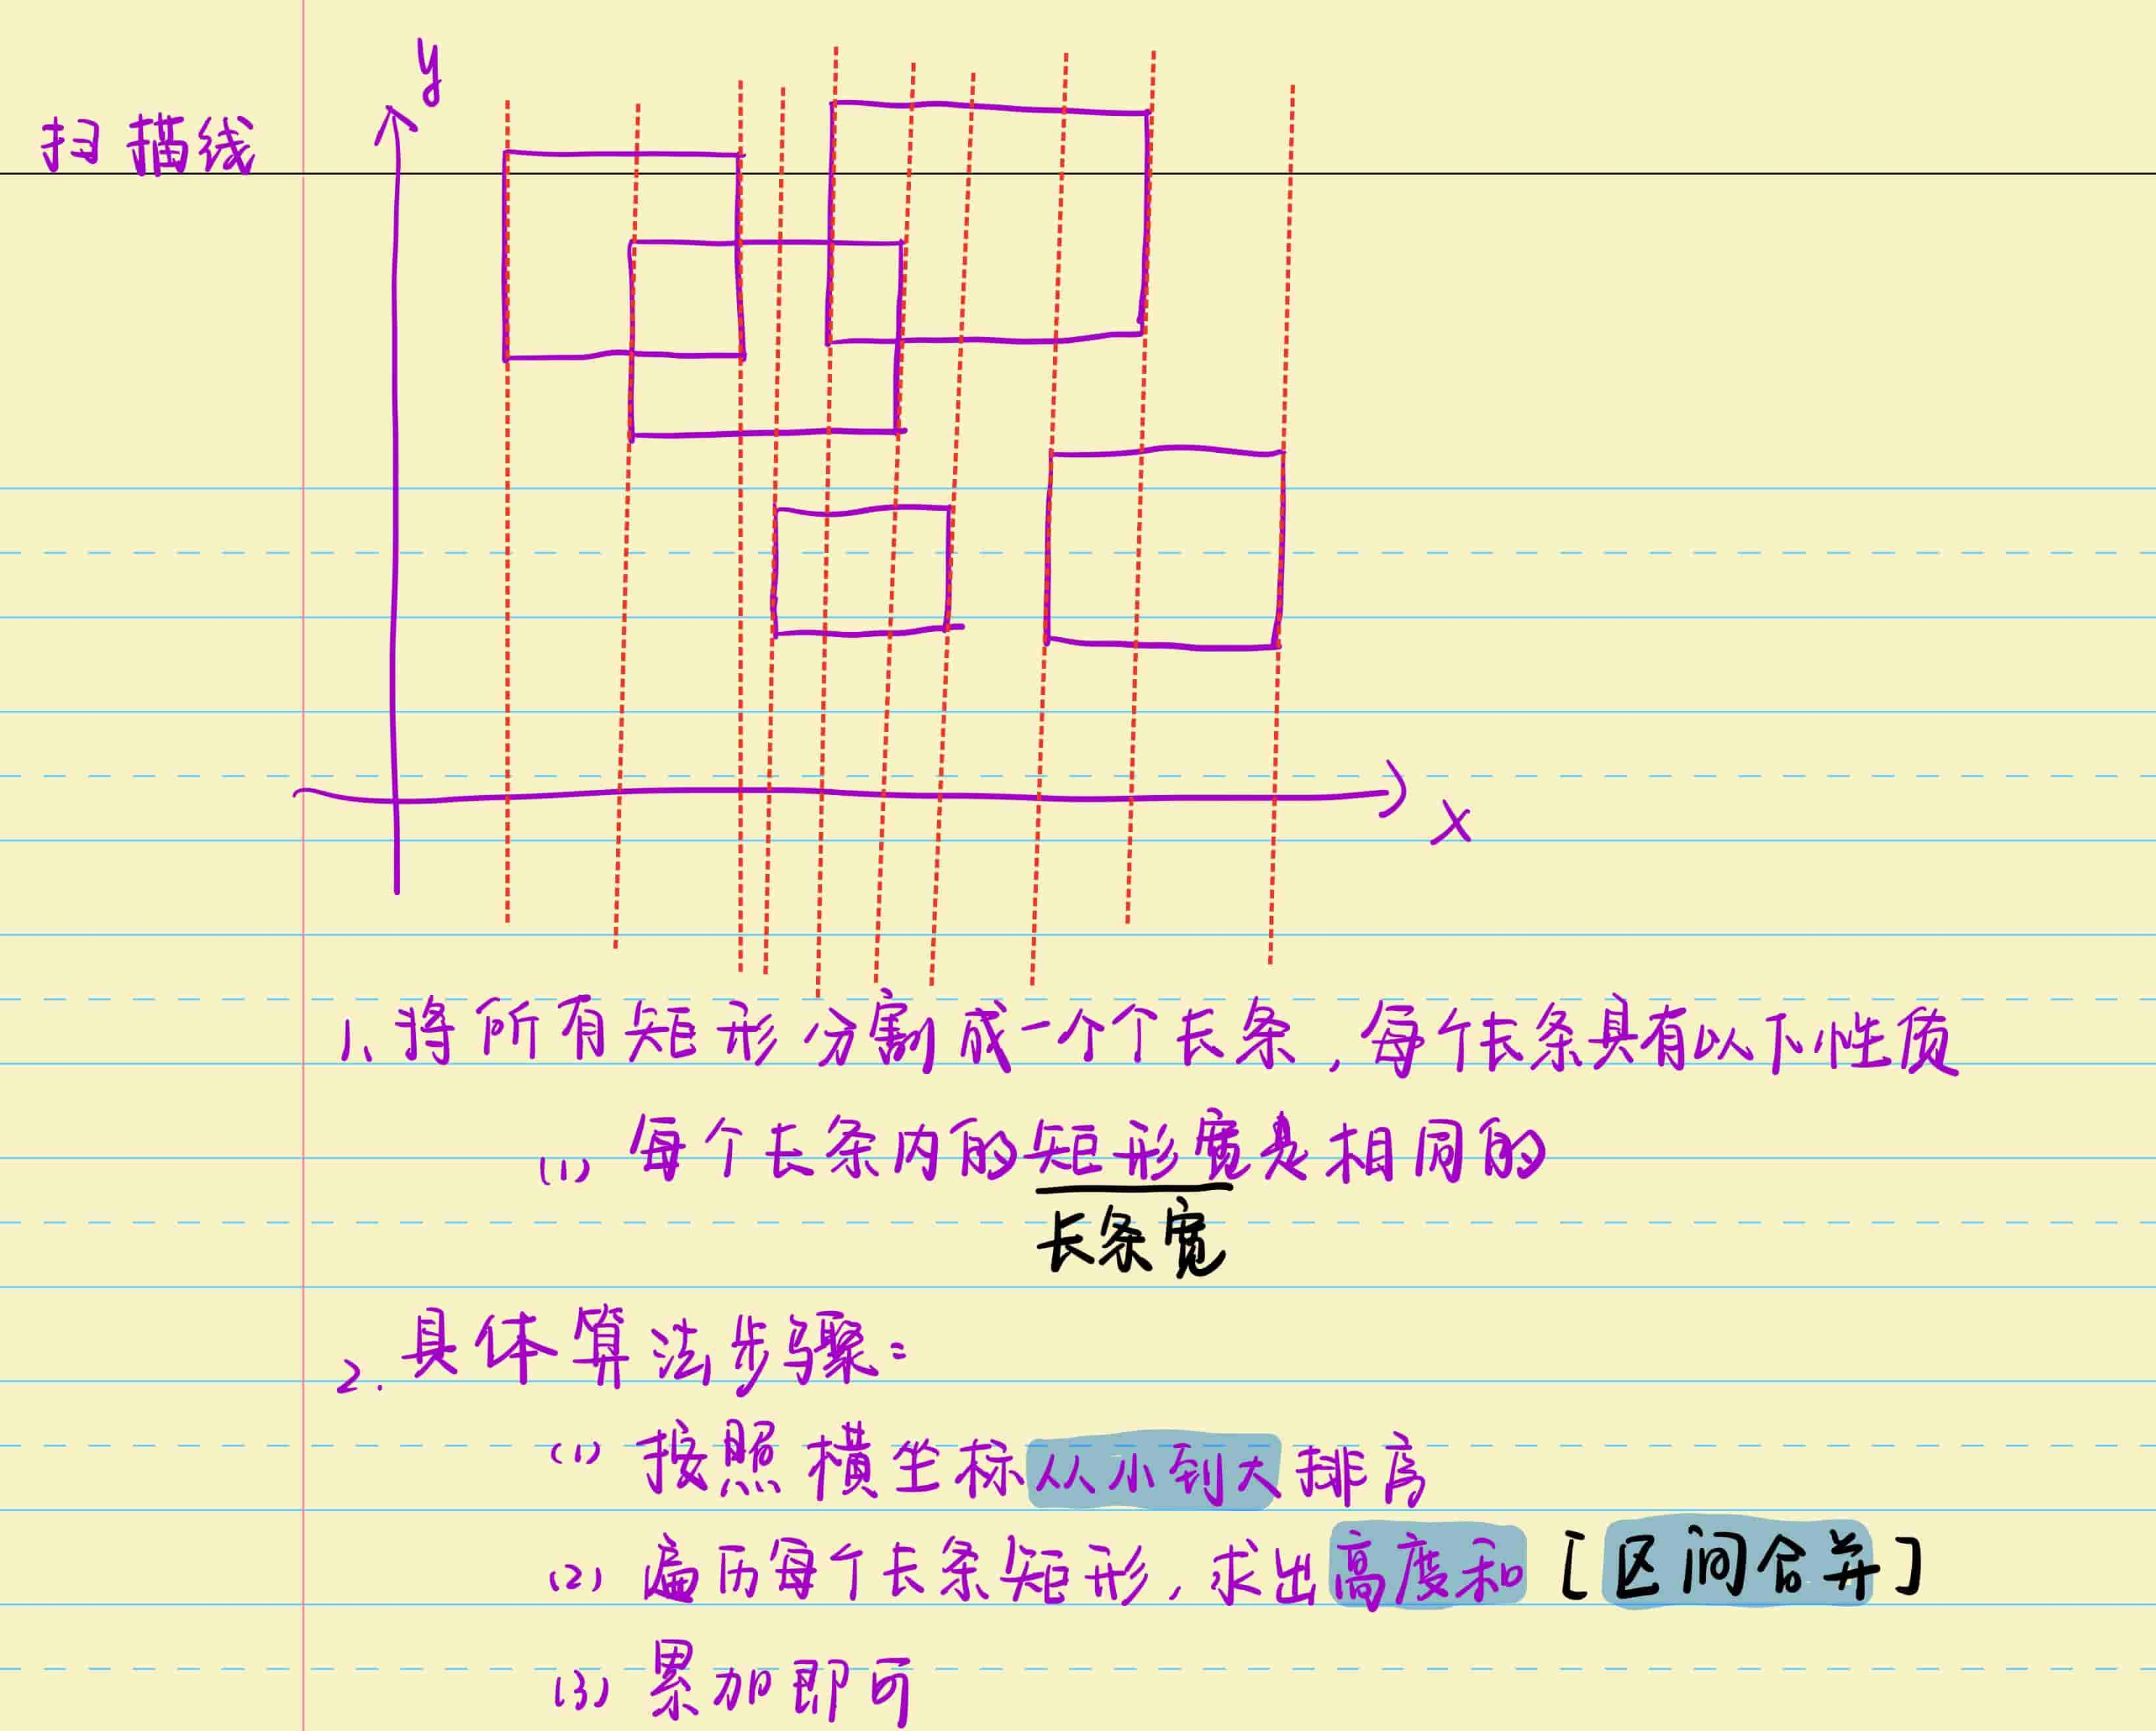 扫描线
y
x
1、将所有矩形分割成一个个长条，每个长条具有以下性质
(1) 每个长条内的矩形宽是相同的
长条宽
2. 具体算法步骤：
(1) 按照横坐标从小到大排序
(2) 遍历每个长条矩形，求出高度和 [区间合并]
(3) 累加即可